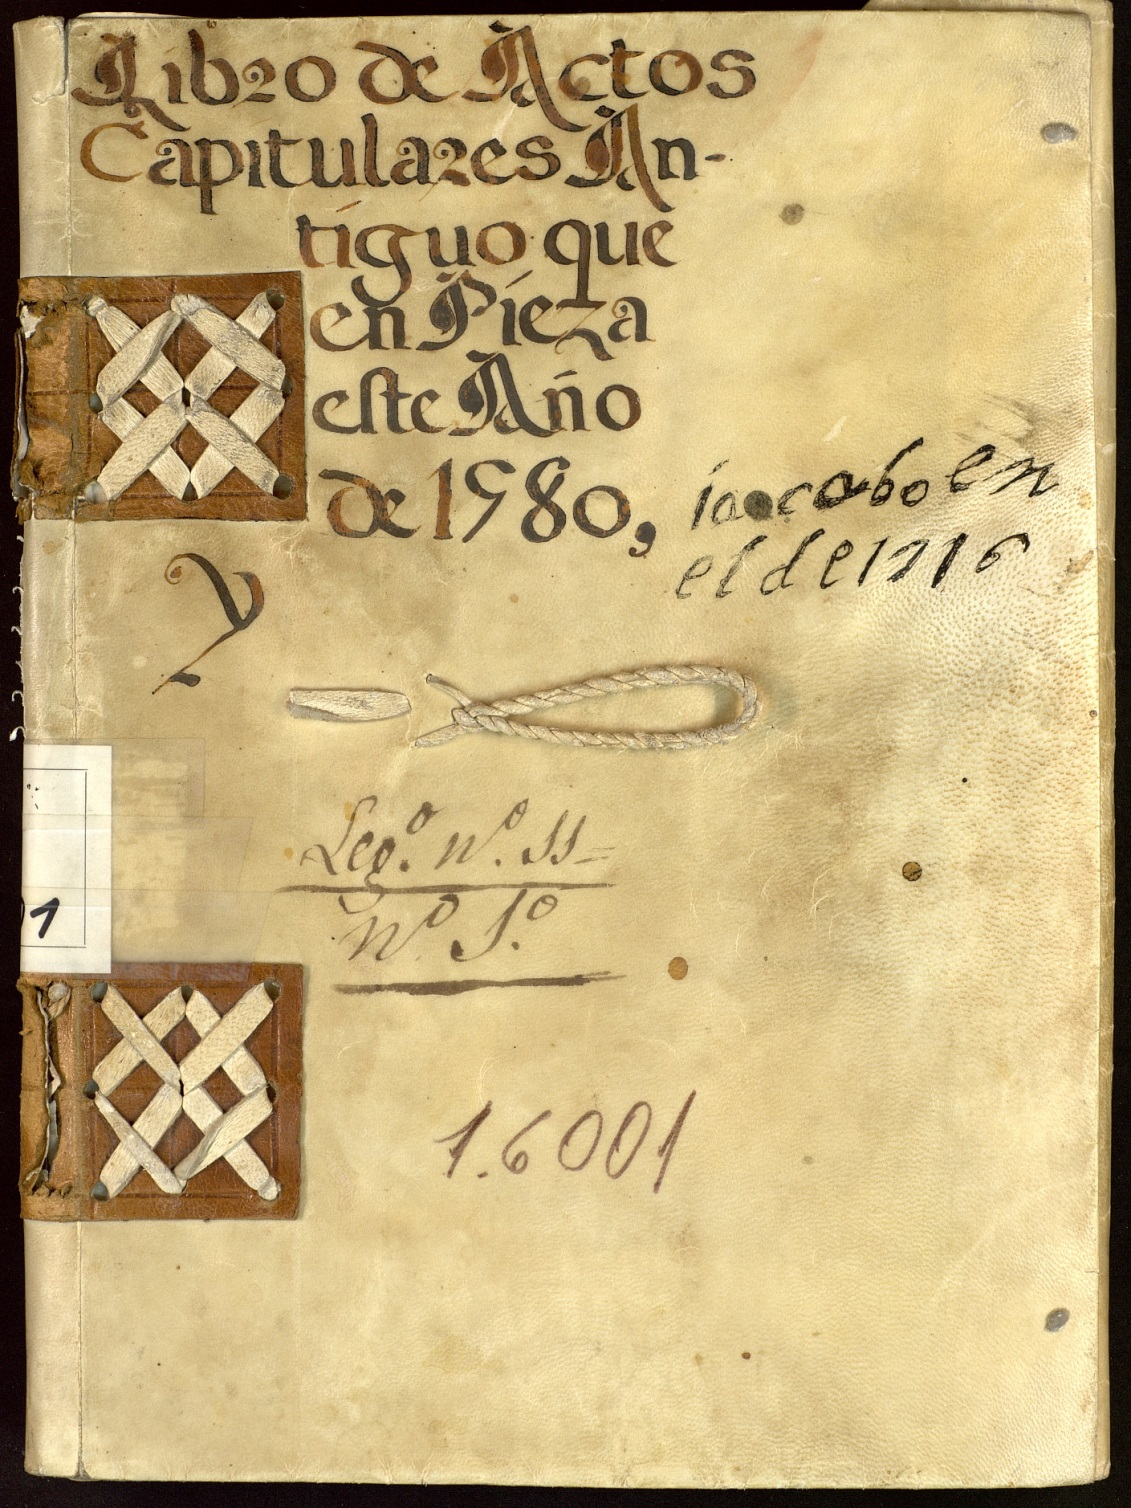 Libro de Actos
Capitulares An-
tiguo que
en Pieza
este Año
de 1580,
iacabo en
el de 1716
Y
Leg.º nº. 11-
nº 1.º
1
1.6001